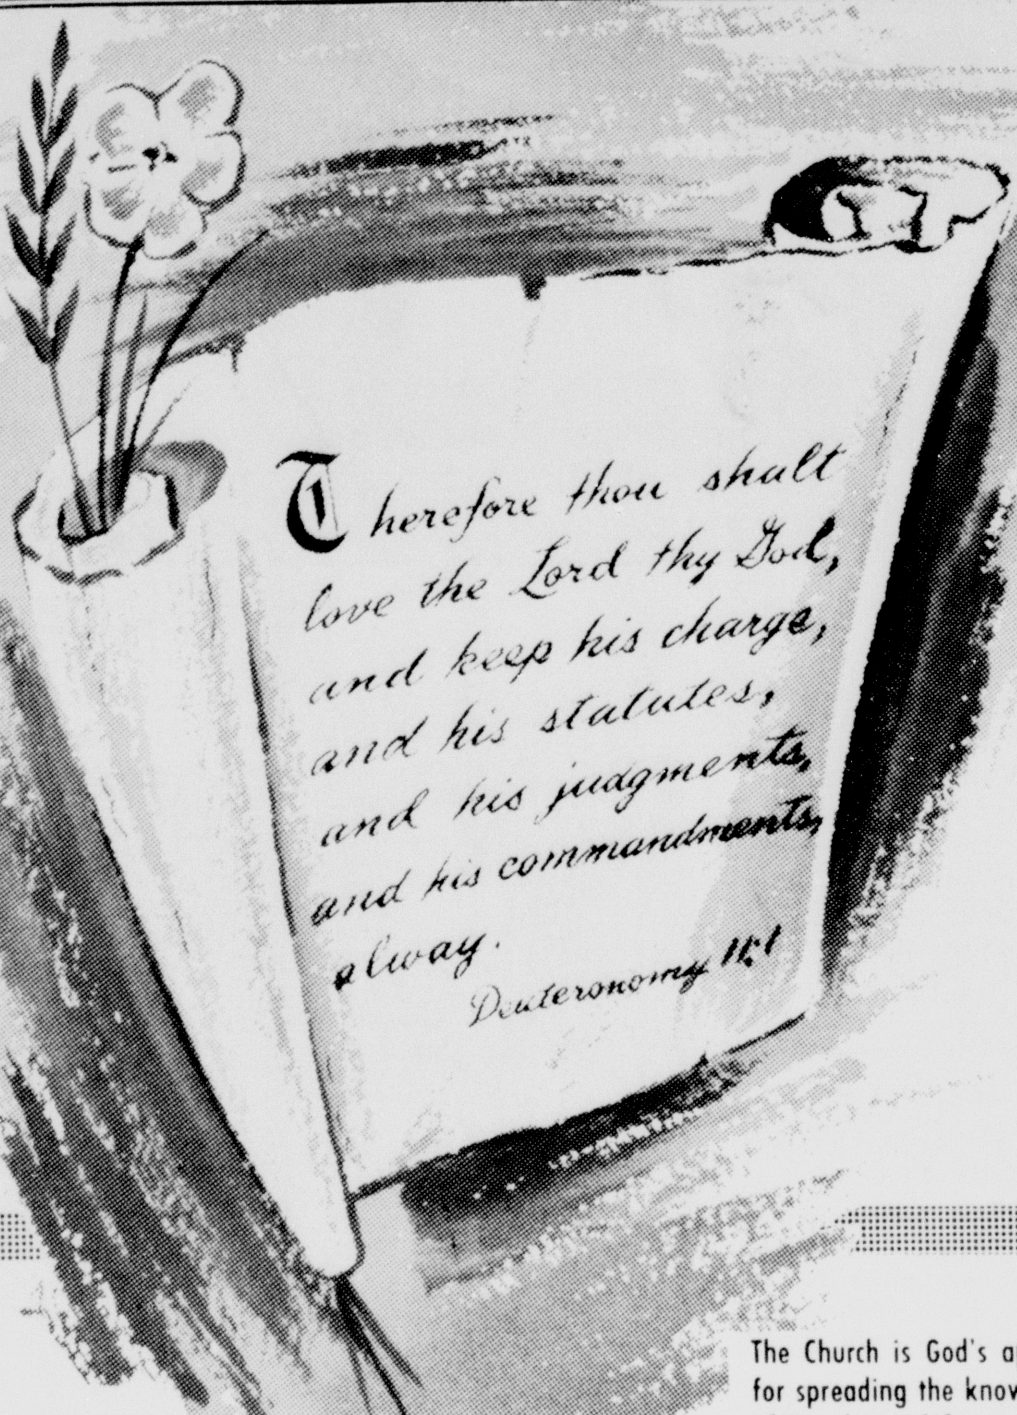 Therefore thou shalt
love the Lord thy God,
and keep his charge,
and his statutes,
and his judgments,
and his commandments,
alway.
Deuteronomy 11:1
The Church is God's
for spreading the